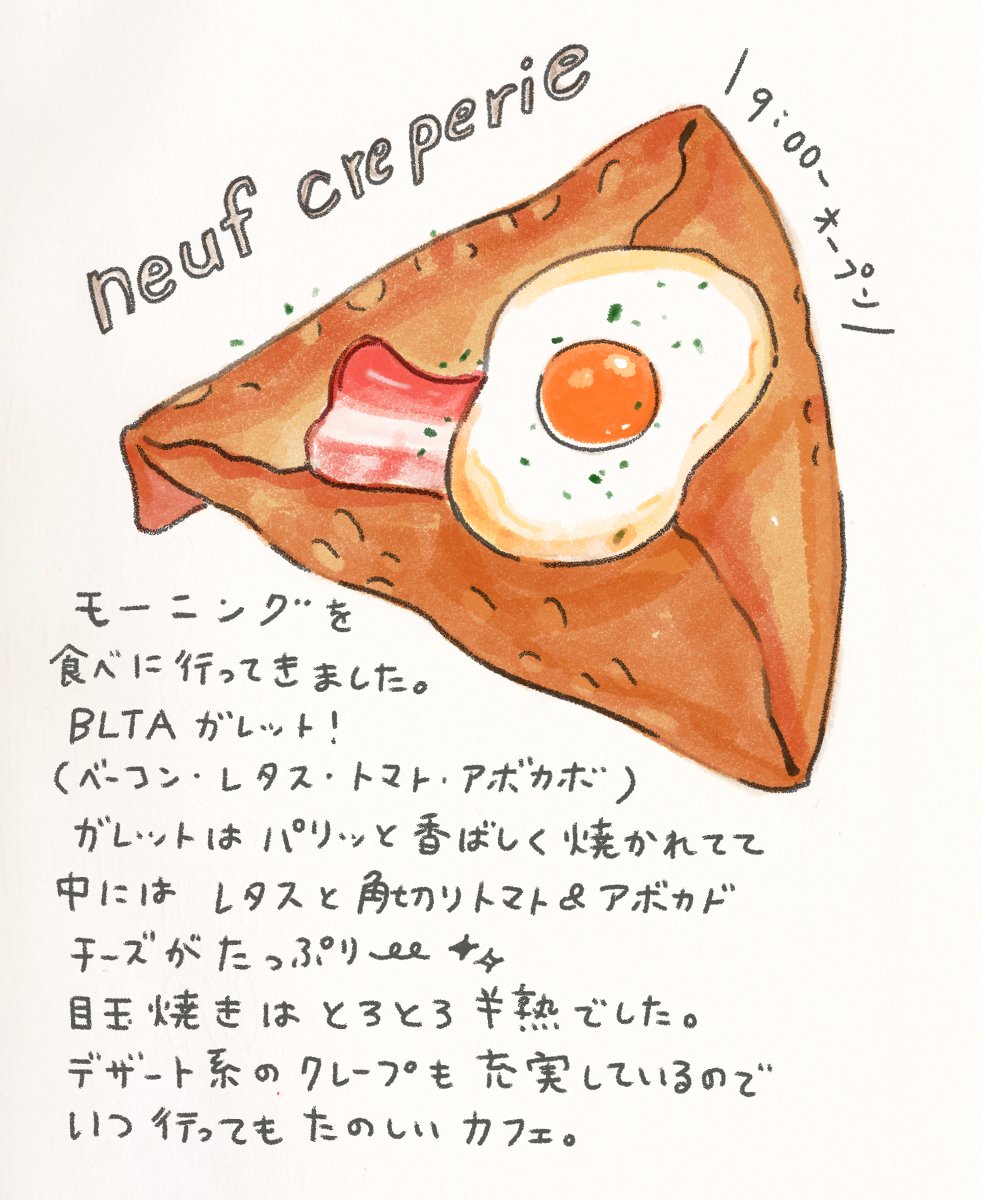 neuf creperie
\9:00~オープン/
モーニングを
食べに行ってきました。
BLTA ガレット!
(ベーコン・レタス・トマト・アボカボ)
ガレットは パリッと 香ばしく 焼かれてて
中には レタスと 角切りトマト&アボカド
チーズが たっぷり
目玉焼きは とろとろ 半熟でした。
デザート系の クレープも 充実しているので
いつ行っても たのしい カフェ。